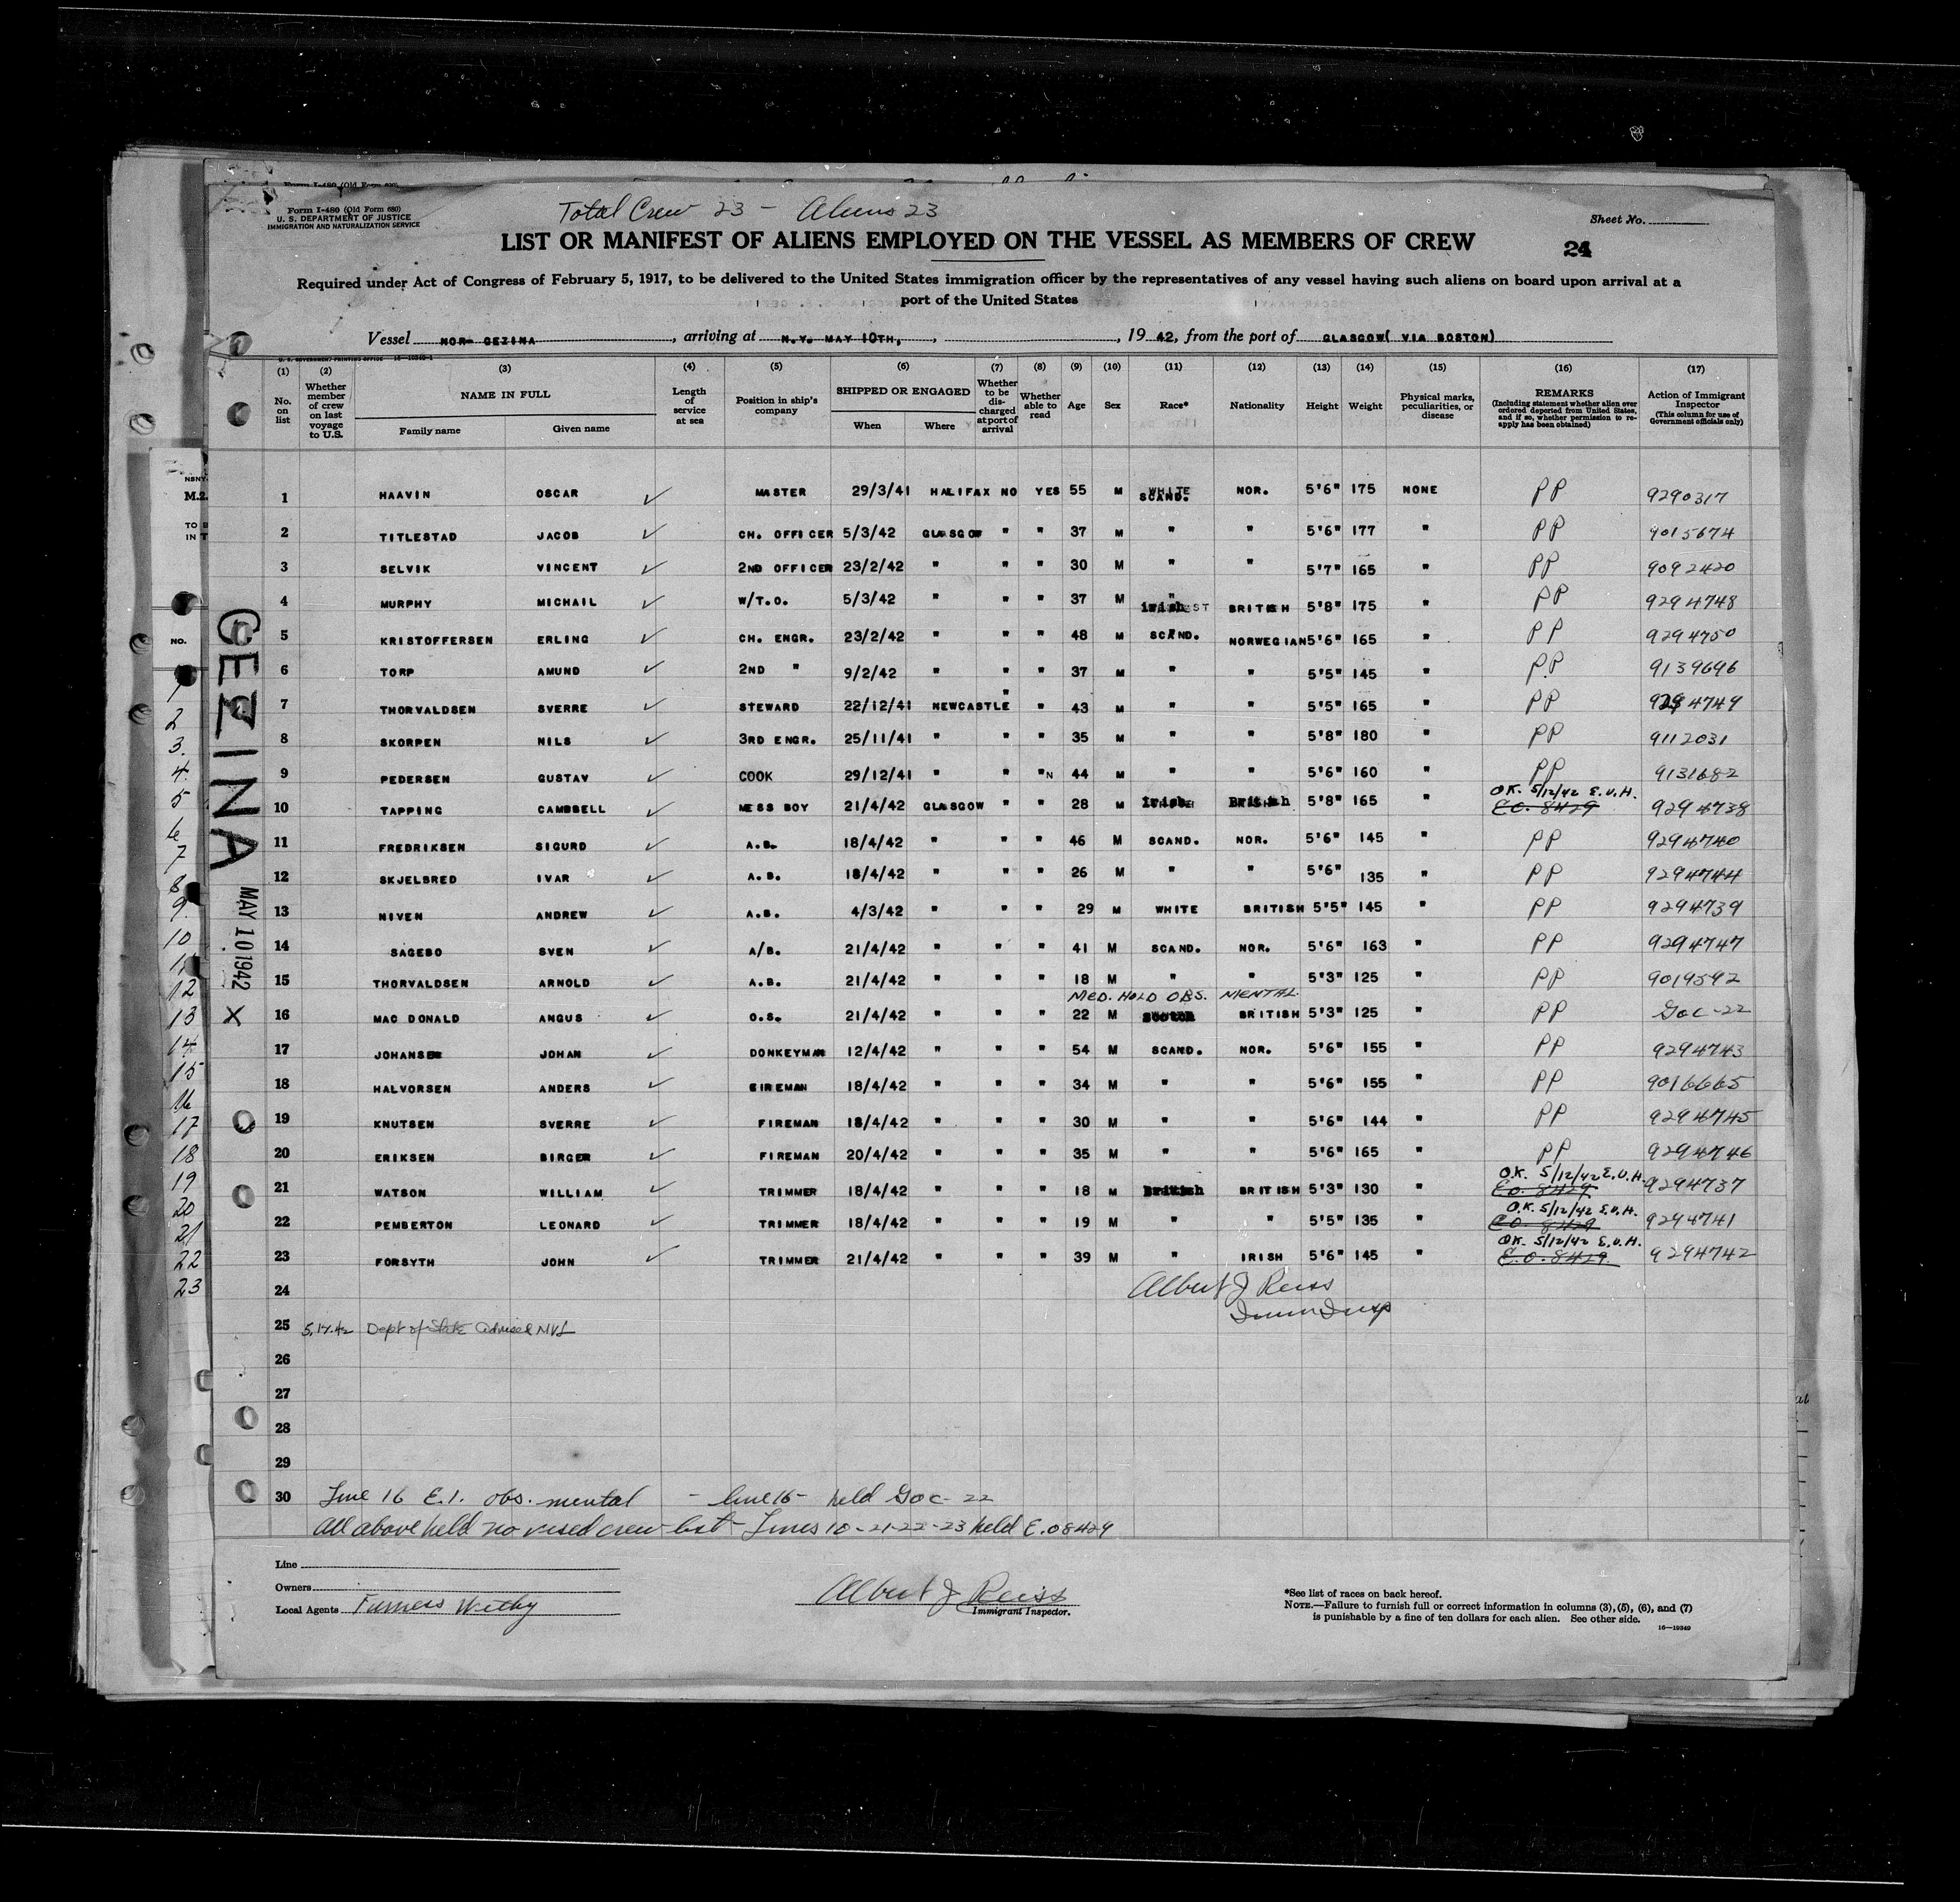 Form I-480 (Old Form 680)
U. S. DEPARTMENT OF JUSTICE
IMMIGRATION AND NATURALIZATION SERVICE
Total Crew 23 - Aliens 23
Sheet No.
LIST OR MANIFEST OF ALIENS EMPLOYED ON THE VESSEL AS MEMBERS OF CREW
24
Required under Act of Congress of February 5, 1917, to be delivered to the United States immigration officer by the representatives of any vessel having such aliens on board upon arrival at a
port of the United States
Vessel NOR- GEZINA, arriving at N.Y. MAY 10TH, , 19 42, from the port of GLASGOW( VIA BOSTON)
U. S. GOVERNMENT PRINTING OFFICE
(1) No. on list (2) Whether member of crew on last voyage to U.S. (3) NAME IN FULL Family name Given name (4) Length of service at sea (5) Position in ship's company (6) SHIPPED OR ENGAGED When Where (7) Whether to be discharged at port of arrival (8) Whether able to read (9) Age (10) Sex (11) Race* (12) Nationality (13) Height (14) Weight (15) Physical marks, peculiarities, or disease (16) REMARKS (Including statement whether alien ever ordered deported from United States, and if so, whether permission to re-apply has been obtained) (17) Action of Immigrant Inspector (This column for use of Government officials only)
1 HAAVIN OSCAR ✓ MASTER 29/3/41 HALIFAX NO YES 55 M WHITE SCAND. NOR. 5'6" 175 NONE PP 9290317
2 TITLESTAD JACOB ✓ CH. OFFICER 5/3/42 GLASGOW " " 37 M " " 5'6" 177 " PP 9015674
3 SELVIK VINCENT ✓ 2ND OFFICER 23/2/42 " " " 30 M " " 5'7" 165 " PP 9092420
4 MURPHY MICHAIL ✓ W/T.O. 5/3/42 " " " 37 M " Irish BRITISH 5'8" 175 " PP 9294748
5 KRISTOFFERSEN ERLING ✓ CH. ENGR. 23/2/42 " " " 48 M SCAND. NORWEGIAN 5'6" 165 " PP 9294750
6 TORP AMUND ✓ 2ND " 9/2/42 " " " 37 M " " 5'5" 145 " PP 9139696
7 THORVALDSEN SVERRE ✓ STEWARD 22/12/41 NEWCASTLE " " 43 M " " 5'5" 165 " PP 9294749
8 SKORPEN NILS ✓ 3RD ENGR. 25/11/41 " " " 35 M " " 5'8" 180 " PP 9112031
9 PEDERSEN GUSTAV ✓ COOK 29/12/41 " " "N 44 M " " 5'6" 160 " PP 9131682
10 TAPPING CAMBBELL ✓ MESS BOY 21/4/42 GLASGOW " " 28 M Irish British 5'8" 165 " OK. 5/12/42 E.V.H. E.O. 8429 9294738
11 FREDRIKSEN SIGURD ✓ A.B. 18/4/42 " " " 46 M SCAND. NOR. 5'6" 145 " PP 9294740
12 SKJELBRED IVAR ✓ A.B. 18/4/42 " " " 26 M " " 5'6" 135 " PP 9294744
13 NIVEN ANDREW ✓ A.B. 4/3/42 " " " 29 M WHITE BRITISH 5'5" 145 " PP 9294739
14 SAGEBO SVEN ✓ A/B. 21/4/42 " " " 41 M SCAND. NOR. 5'6" 163 " PP 9294747
15 THORVALDSEN ARNOLD ✓ A.B. 21/4/42 " " " 18 M " " 5'3" 125 " PP 9019592
MED. HOLD OBS. MENTAL
16 MAC DONALD ANGUS ✓ O.S. 21/4/42 " " " 22 M BRITISH 5'3" 125 " PP Goc-22
17 JOHANSEN JOHAN ✓ DONKEYMAN 12/4/42 " " " 54 M SCAND. NOR. 5'6" 155 " PP 9294743
18 HALVORSEN ANDERS ✓ EIREMAN 18/4/42 " " " 34 M " " 5'6" 155 " PP 9016665
19 KNUTSEN SVERRE ✓ FIREMAN 18/4/42 " " " 30 M " " 5'6" 144 " PP 9294745
20 ERIKSEN BIRGER ✓ FIREMAN 20/4/42 " " " 35 M " " 5'6" 165 " PP 9294746
21 WATSON WILLIAM ✓ TRIMMER 18/4/42 " " " 18 M British BRITISH 5'3" 130 " O.K. 5/12/42 E.V.H. E.O. 8429 9294737
22 PEMBERTON LEONARD ✓ TRIMMER 18/4/42 " " " 19 M " " 5'5" 135 " O.K. 5/12/42 E.V.H. E.O. 8429 9294741
23 FORSYTH JOHN ✓ TRIMMER 21/4/42 " " " 39 M " IRISH 5'6" 145 " OK. 5/12/42 E.V.H. E.O. 8429. 9294742
24 Albert J Reiss
25 5.14.42 Dept of State advised NVL
26
27
28
29
30 Line 16 E.I. obs. mental - line 16 - held Goc-22
All above held no vised crew list - Lines 10-21-22-23 held E.O 8429
Line
Owners
Local Agents Furness Withy
Albert J Reiss
Immigrant Inspector.
*See list of races on back hereof.
NOTE.—Failure to furnish full or correct information in columns (3), (5), (6), and (7)
is punishable by a fine of ten dollars for each alien. See other side.
16—19349
GEZINA
MAY 10 1942
X
NO.
1
2
3.
4.
5
6
7
8
9.
10
11
12
13
14
15
16
17
18
19
20
21
22
23